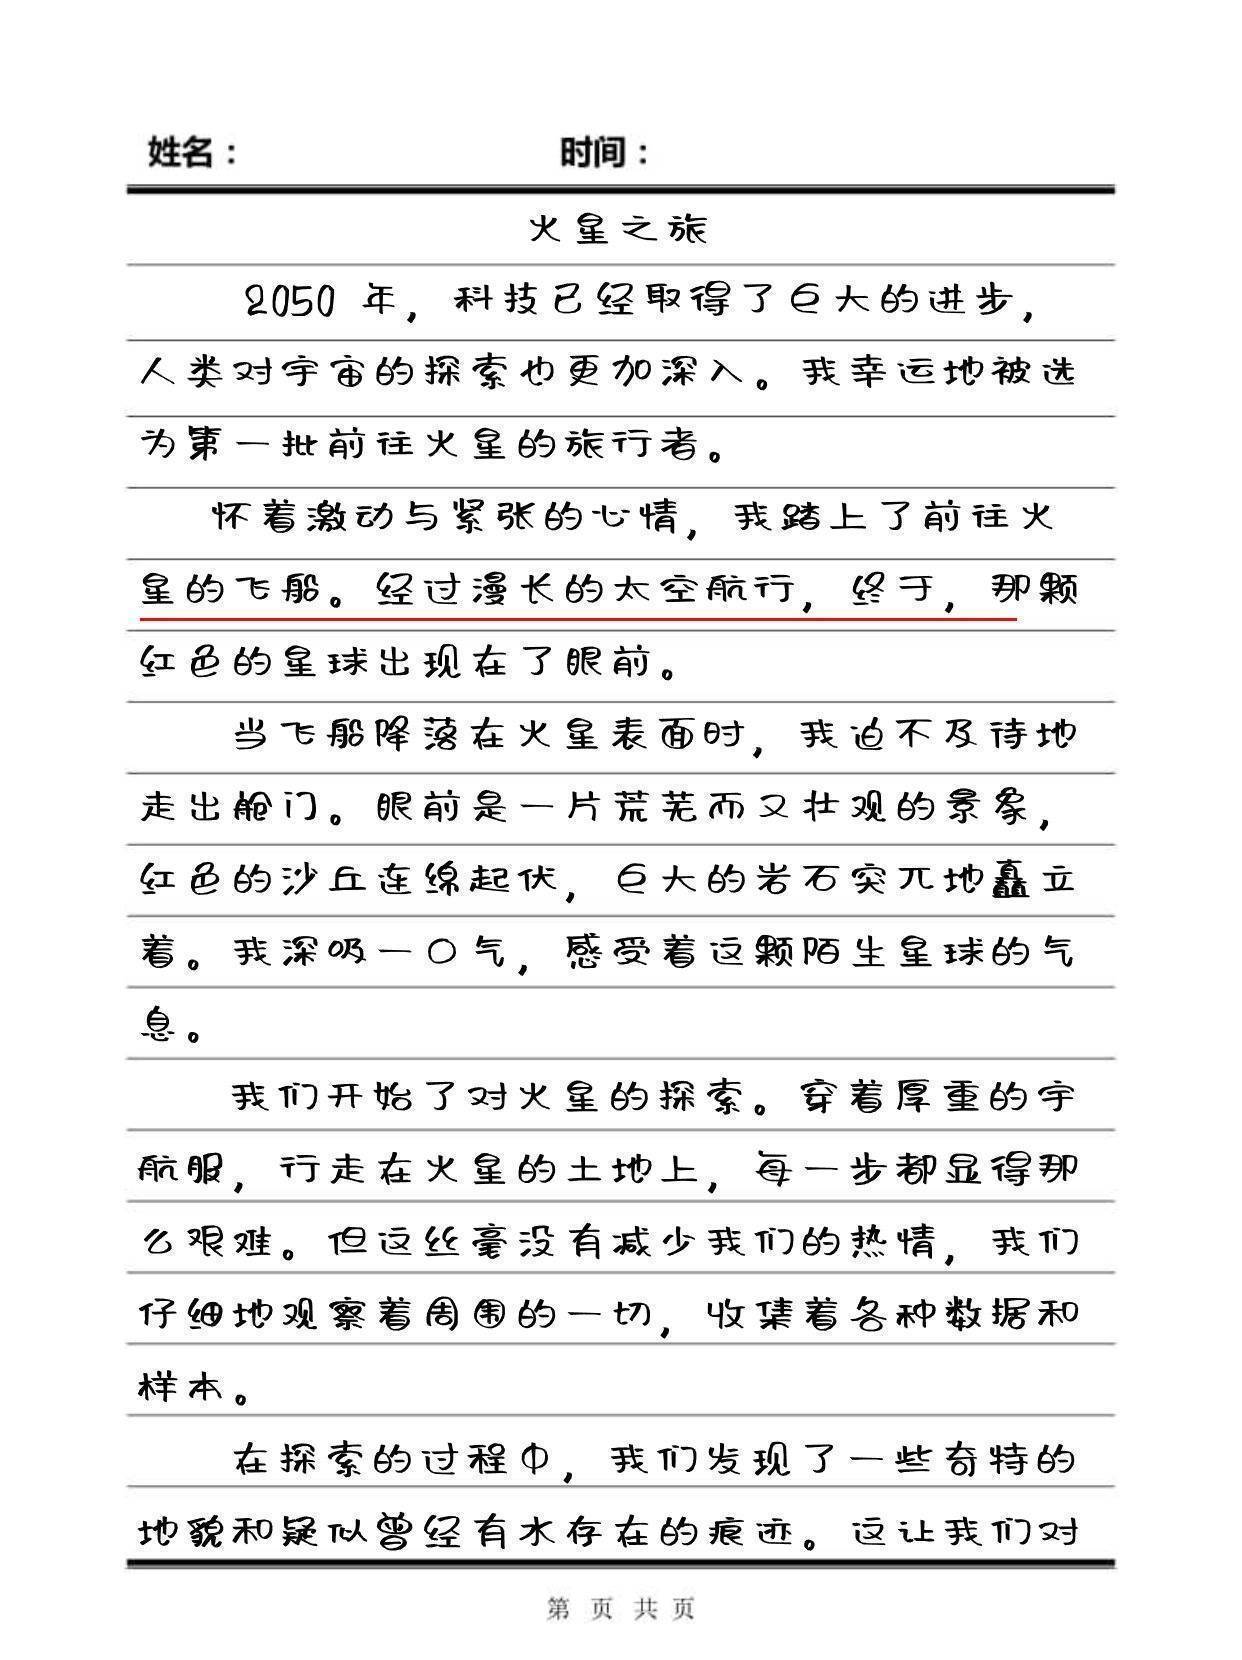 姓名： 时间：
火星之旅
2050 年，科技已经取得了巨大的进步，
人类对宇宙的探索也更加深入。我幸运地被选
为第一批前往火星的旅行者。
怀着激动与紧张的心情，我踏上了前往火
星的飞船。经过漫长的太空航行，终于，那颗
红色的星球出现在了眼前。
当飞船降落在火星表面时，我迫不及待地
走出舱门。眼前是一片荒芜而又壮观的景象，
红色的沙丘连绵起伏，巨大的岩石突兀地矗立
着。我深吸一口气，感受着这颗陌生星球的气
息。
我们开始了对火星的探索。穿着厚重的宇
航服，行走在火星的土地上，每一步都显得那
么艰难。但这丝毫没有减少我们的热情，我们
仔细地观察着周围的一切，收集着各种数据和
样本。
在探索的过程中，我们发现了一些奇特的
地貌和疑似曾经有水存在的痕迹。这让我们对
第 页 共 页